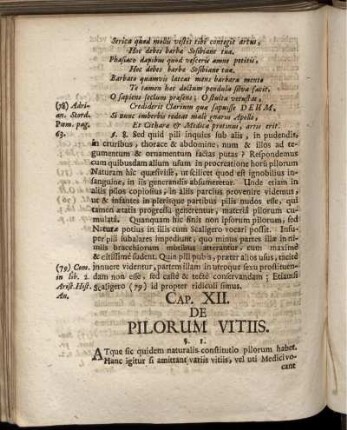 Serica quod mollis vestis tibi contegit artus,
Hoc debes barbæ Sosibiane tuæ.
Phasiaco dapibus quod vesceris amne petitis,
Hoc debes barbæ Sosibiane tuæ.
Barbato quamvis lateat mens barbara mento
Te tamen hæc doctum pendula silva facit.
O sapiens seclum præsens; O stulta vetustas,
(78) Adri-
an. Stord.
Poem. pag.
63.
Credideris Clarium quæ sapuisse DEUM,
Si nunc imberbis redeat malè gnarus Apollo,
Et Cithara & Medica protinus, arte erit.
§. 8. Sed quid pili inquies sub alis, in pudendis,
in cruribus, thorace & abdomine, num & illos ad te-
gumentum & ornamentum factas putas? Respondemus
cum quibusdam allum suum in procreatione horū pilorum
Naturam hîc quæsivisse, ut scilicet quod est ignobilius in
sanguine, in iis generandis absumeretur. Unde etiam in
aliis pilos copiosius, in aliis parcius provenire videmus,
ut & infantes in plerisque partibus pilis nudos esse, qui
tamen ætatis progressu generentur, materiâ pilorum cumu-
lati. Quanquam hic finis non ipsorum pilorum, sed
Naturæ potius in illis cum Scaligero vocari possit. Insu-
per pili subalares impediunt, quo minus partes illæ in ni-
miis brachiorum motibus atterantur, cum maximè
& citissimè sudent. Quin pili pubis, præter alios usus, tacitè
(79) Com.
in lib. 2.
Arist. Hist.
An.
innuere videntur, partem illam in utroque sexu prostituen-
dam non esse, sed castè & tectè conservandam; Etiamsi
Scaligero (79) id propter ridiculi simus.
CAP. XII.
DE
PILORUM VITIIS.
§. 1.
ATque sic quidem naturalis constitutio pilorum habet.
Hanc igitur si amittant variis vitiis, vel uti Medici vo-
cant